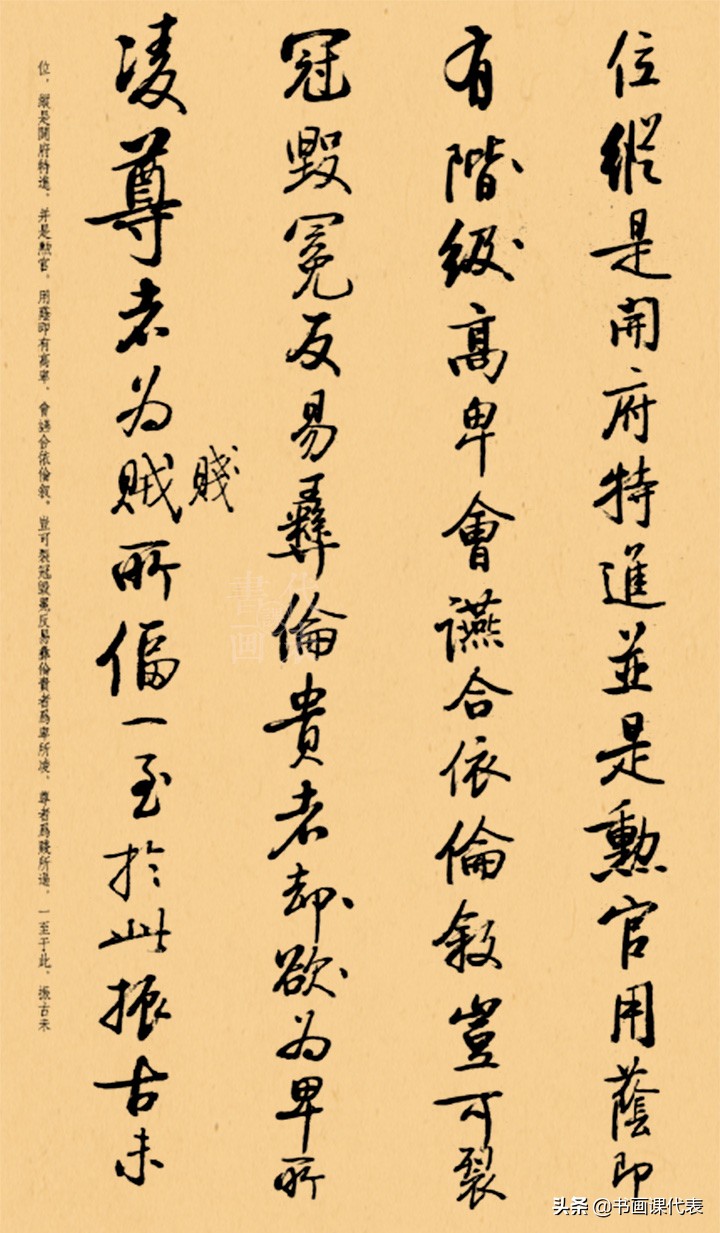 位縱是開府特進並是勳官用蔭即
有階級高卑會讌合依倫敘豈可裂
冠毀冕反易彝倫貴者却欲为卑所
凌尊者为賊所偪一至於此振古未
賤
位，縱是開府特進，并是勲官，用蔭即有高卑，會讌合依倫敘，豈可裂冠毀冕反易彝倫貴者爲卑所凌，尊者爲賤所逼，一至于此，振古未
書画
头条 @书画课代表